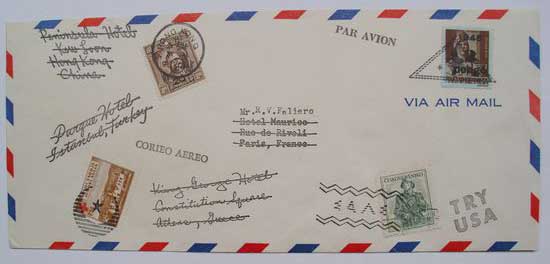 Peninsula Hotel
Kow Loon
Hong Kong
China
PAR AVION
1944
VIA AIR MAIL
Parque Hotel
Istanbul, Turkey
Mr. R.V. Feliero
Hotel Maurice
Rue de Rivoli
Paris, France
CORIEO AEREO
King George Hotel
Constitution Square
Athens, Greece
TRY
USA